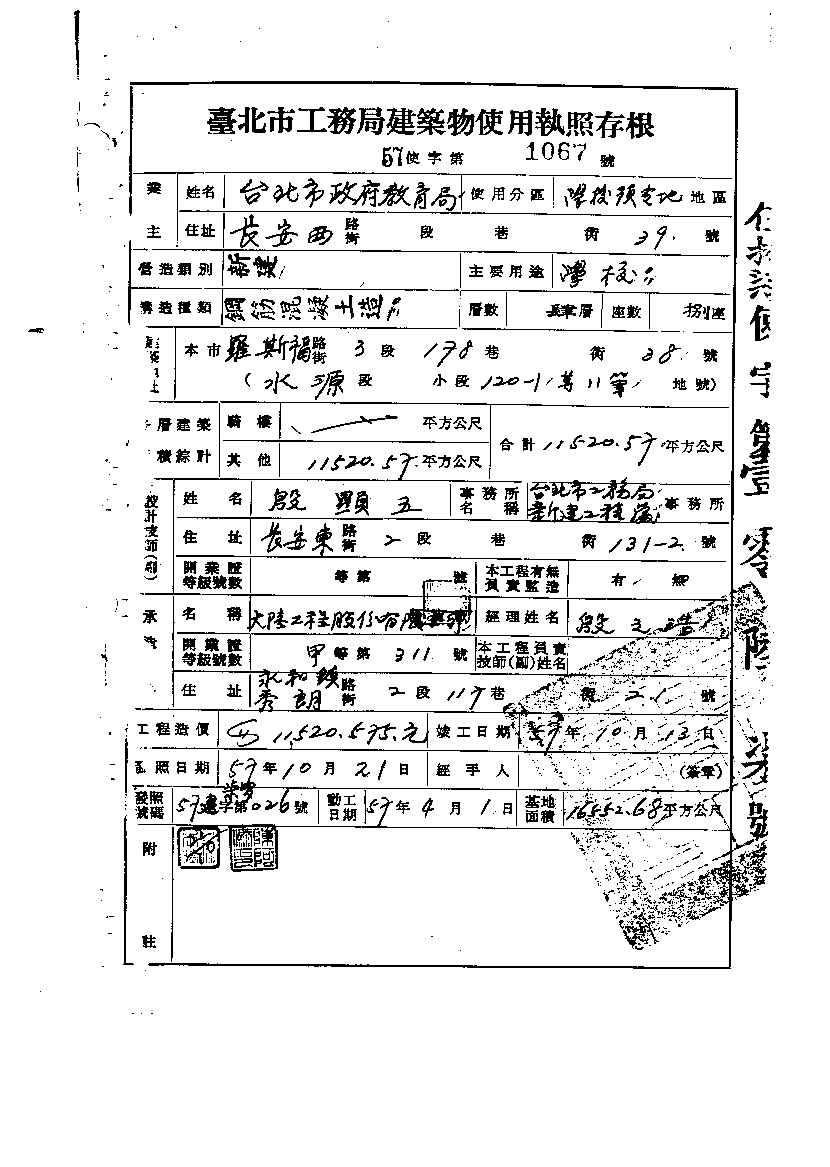 臺北市工務局建築物使用執照存根
57使字第 1067 號
業主 姓名 台北市政府教育局 使用分區 學校預定地 地區
住址 長安西 路街 段 巷 街 39 號
營造類別 新建 主要用途 學校
構造種類 鋼筋混凝土造 層數 層 座數 捌座
本市 羅斯福 路街 3 段 178 巷 街 38 號
(水源 段 小段 120-1 等11筆 地號)
層建築 騎樓 平方公尺 合計 11520.57 平方公尺
積綜計 其他 11520.57 平方公尺
設計技師(副) 姓名 殷顯五 事務所名稱 台北市工務局新建工程處 事務所
住址 長安東 路街 2 段 巷 街 131-2 號
開業證等級號數 等第 號 本工程有無負責監造 有 無
承 名稱 大陸工程股份有限 經理姓名 殷之浩
開業證等級號數 甲 等第 311 號 本工程負責技師(副)姓名
住址 永和鎮秀朗 路街 2 段 117 巷 街 21 號
工程造價 11,520.575.元 竣工日期 57年10月13日
照日期 57年10月21日 經手人 (簽章)
發照號碼 57建字第026號 動工日期 57年4月1日 基地面積 16552.68平方公尺
附註
使字第壹零陸柒號